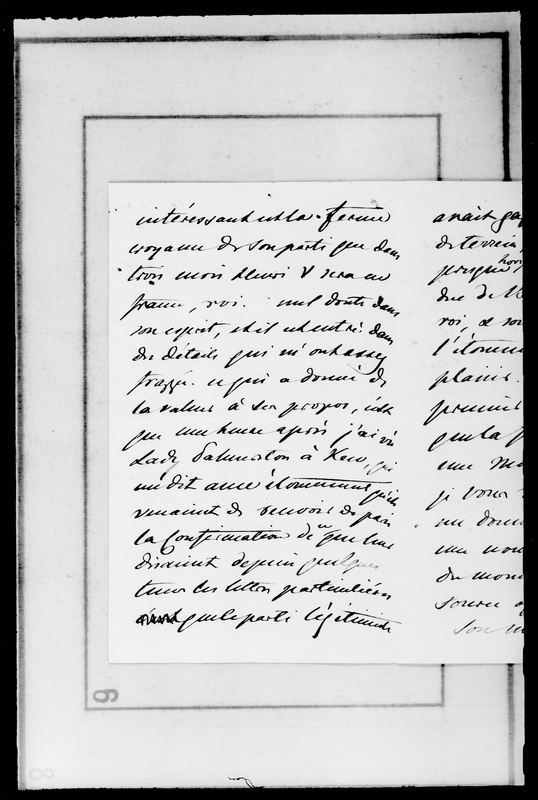 intéressant est la ferme
croyance de son parti que dans
trois mois Henri V sera en
france, roi. nul doute dans
son esprit, et il est entré dans
des détails qui m'ont assez
frappé. ce qui a donné de
la valeur à ses propos, c'est
que une heure après j'ai vu
Lady Palmerston à Kew, qui
m'a dit avec étonnement qu'elle
venait de recevoir de paris
la Confirmation de ce que leur
disaient depuis quelque
temps les lettres particulières
que le parti légitimiste
avait ga
de terrein
presque hor
duc de
roi, &
l'étonne
plaisir.
premier
que la
une
je vous
me donn
une nou
du mon
source
son
6
8